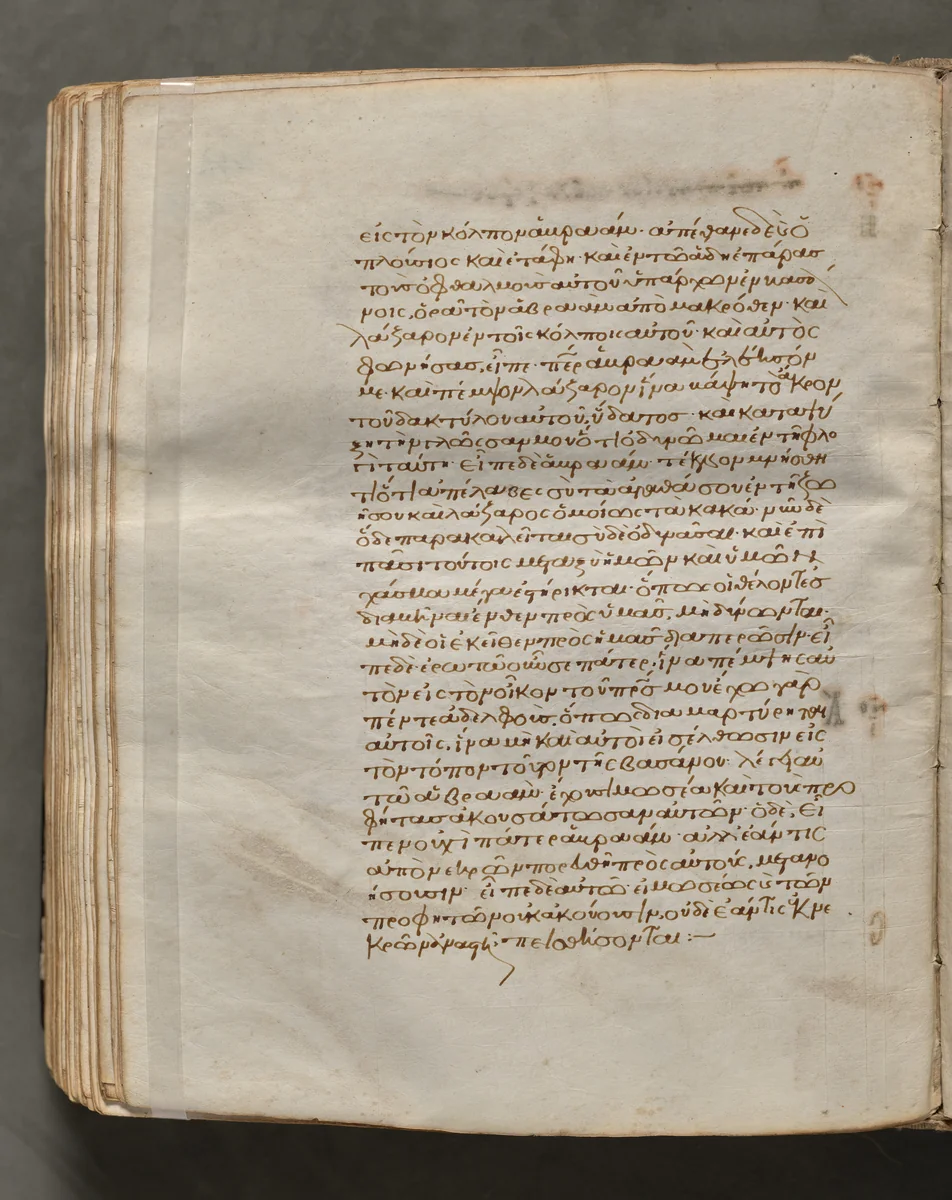 εἰς τὸν κόλπον ἀβρααμ· ἀπέθανε δὲ καὶ ὁ
πλούσιος καὶ ἐτάφη· καὶ ἐν τῶ ἅδη ἐπάρας
τοὺς ὀφθαλμοὺς αὐτοῦ ὑπάρχων ἐν βασά
νοις, ὁρᾶ τὸν ἀβραὰμ ἀπὸ μακρόθεν· καὶ
λάζαρον ἐν τοῖς κόλποις αὐτοῦ· καὶ αὐτὸς
φωνήσας, εἶπε· περ ἀβραὰμ ἐλέησόν
με· καὶ πέμψον λάζαρον ἵνα βάψη τὸ ἄκρον
τοῦ δακτύλου αὐτοῦ ὕδατος· καὶ καταψύ
ξη τὴν γλῶσσαν μου ὅτι ὀδυνῶμαι ἐν τῆ φλο
γὶ ταύτη· εἶπε δὲ ἀβρααμ· τέκνον μνήσθη
τι ὅτι ἀπέλαβες σὺ τὰ ἀγαθά σου ἐν τῆ ζω
ῆ σου καὶ λάζαρος ὁμοίως τὰ κακά· νῦν δὲ
ὅδε παρακαλεῖται σὺ δὲ ὀδυνᾶσαι· καὶ ἐπὶ
πᾶσι τούτοις μεταξὺ ἡμῶν καὶ ὑμῶν
χάσμα μέγα ἐστήρικται· ὅπως οἱ θέλοντες
διαβῆναι ἔνθεν πρὸς ὑμᾶς, μὴ δύνωνται·
μηδὲ οἱ ἐκεῖθεν πρὸς ἡμᾶς διαπερῶσιν· εἶ
πε δὲ· ἐρωτῶ οὖν σε πάτερ, ἵνα πέμψης αὐ
τὸν εἰς τὸν οἶκον τοῦ πρσ μου ἔχω γὰρ
πέντε ἀδελφούς, ὅπως διαμαρτύρηται
αὐτοῖς, ἵνα μὴ καὶ αὐτοὶ εἰσέλθωσιν εἰς
τὸν τόπον τοῦτον τῆς βασάνου· λέγει αὐ
τῶ ἀβρααμ· ἔχουσι μωσέα καὶ τοὺς προ
φήτας ἀκουσάτωσαν αὐτῶν· ὁ δὲ, εἶ
πεν οὐχὶ πάτερ ἀβρααμ· ἀλλ' ἐάν τις
ἀπὸ νεκρῶν πορευθῆ πρὸς αὐτούς, μετανο
ήσουσιν· εἶπε δὲ αὐτῶ· εἰ μωσέως καὶ τῶν
προφητῶν οὐκ ἀκούουσιν, οὐδὲ ἐάν τις ἐκ νε
κρῶν ἀναστῆ πεισθήσονται :—